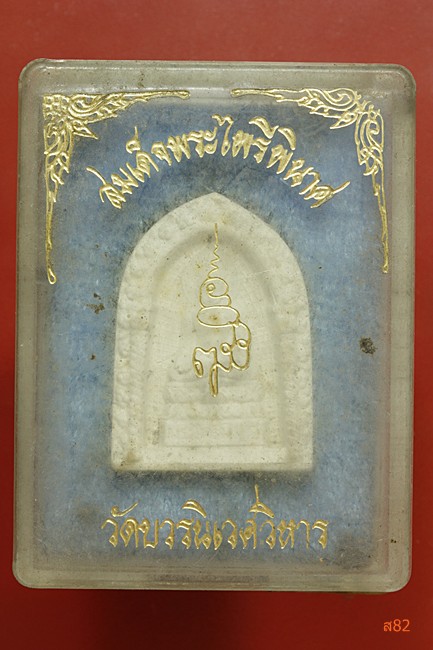 สมเด็จพระไพรีพินาศ
วัดบวรนิเวศวิหาร
ส82